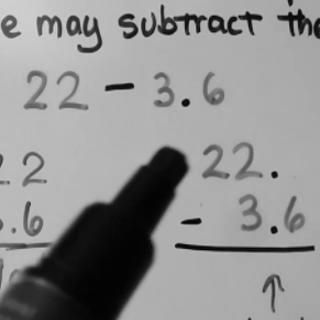 e may subtract the
22 - 3.6
2 22.
.6 - 3.6